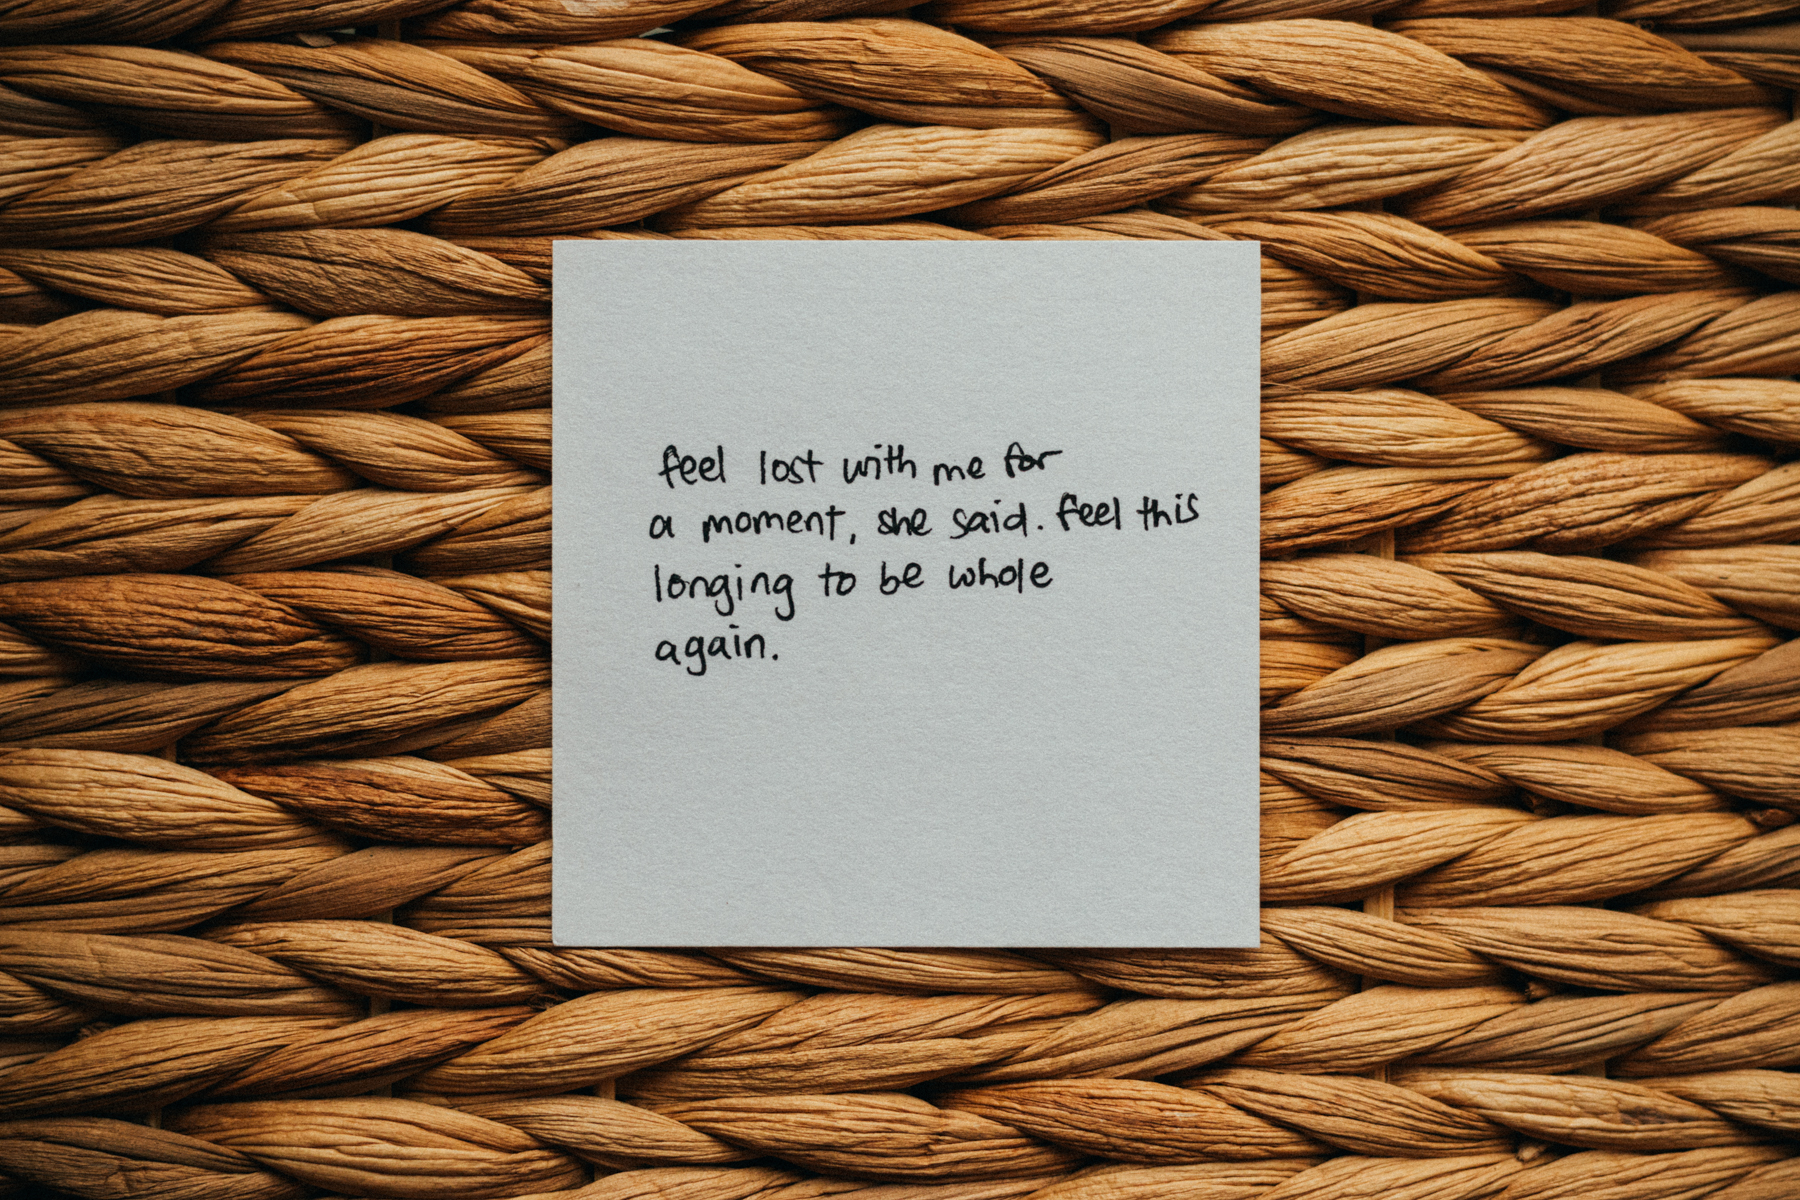 feel lost with me for
a moment, she said. feel this
longing to be whole
again.